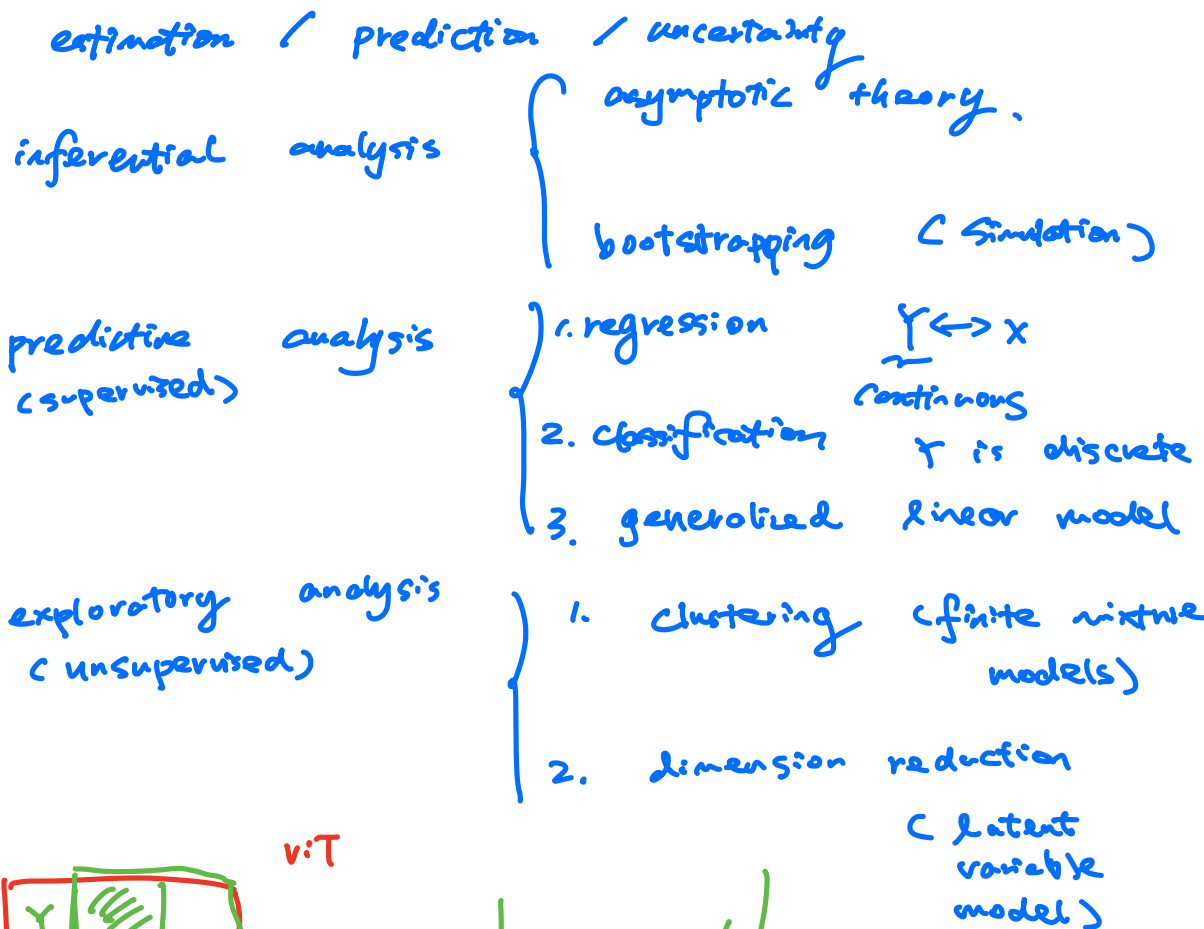 estimation / prediction / uncertainty
inferential analysis { asymptotic theory.
bootstrapping (simulation)
predictive analysis { 1. regression Y ↔ x
(supervised) continuous
2. classification Y is discrete
3. generalized linear model
exploratory analysis { 1. clustering (finite mixture
(unsupervised) models)
2. dimension reduction
(latent
variable
model)
ViT
Y